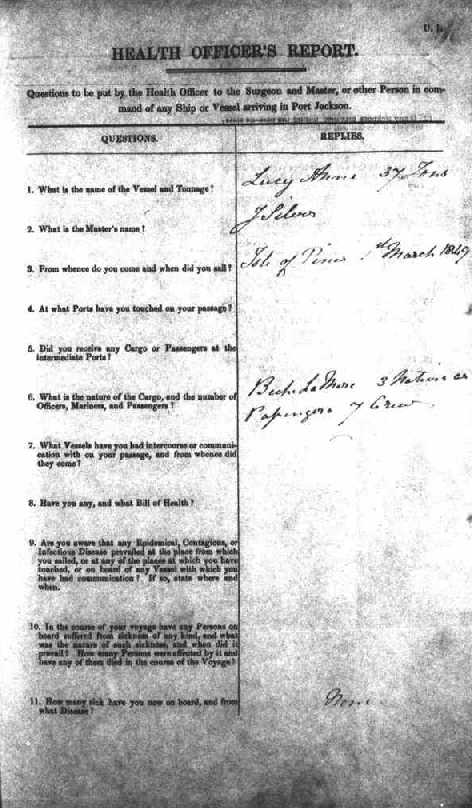 HEALTH OFFICER'S REPORT.
Questions to be put by the Health Officer to the Surgeon and Master, or other Person in com-
mand of any Ship or Vessel arriving in Port Jackson.
QUESTIONS.
REPLIES.
1. What is the name of the Vessel and Tonnage?
Lucy Anne 37 Tons
2. What is the Master's name?
J Silver
3. From whence do you come and when did you sail?
Isle of Pines 1st March 1849
4. At what Ports have you touched on your passage?
5. Did you receive any Cargo or Passengers at the
Intermediate Ports?
6. What is the nature of the Cargo, and the number of
Officers, Mariners, and Passengers?
Beche La Mare 3 Natives as
Passengers 7 Crew
7. What Vessels have you had intercourse or communi-
cation with on your passage, and from whence did
they come?
8. Have you any, and what Bill of Health?
9. Are you aware that any Epidemical, Contagious, or
Infectious Disease prevailed at the place from which
you sailed, or at any of the places at which you have
touched, or on board of any Vessel with which you
have had communication? If so, state where and
when.
10. In the course of your voyage have any Persons on
board suffered from sickness of any kind, and what
was the nature of such sickness, and when did it
prevail? How many Persons were affected by it and
have any of them died in the course of the Voyage?
11. How many sick have you now on board, and from
what Disease?
None